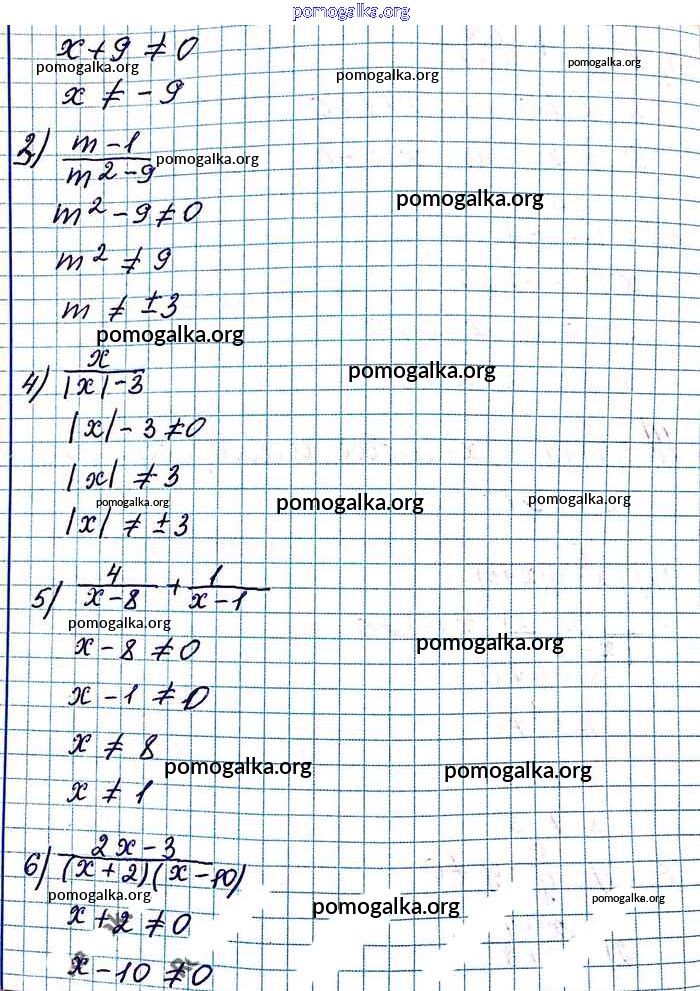 pomogalka.org
x + 9 ≠ 0
pomogalka.org pomogalka.org pomogalka.org
x ≠ - 9
3) m - 1 / m² - 9 pomogalka.org
pomogalka.org
m² - 9 ≠ 0
m² ≠ 9
m ≠ ±3
pomogalka.org
4) x / |x| - 3 pomogalka.org
|x| - 3 ≠ 0
|x| ≠ 3
pomogalka.org pomogalka.org pomogalka.org
|x| ≠ ±3
5) 4 / x - 8 + 1 / x - 1
pomogalka.org
x - 8 ≠ 0 pomogalka.org
x - 1 ≠ 0
x ≠ 8
pomogalka.org pomogalka.org
x ≠ 1
6) 2x - 3 / (x + 2)(x - 10)
pomogalka.org pomogalka.org pomogalka.org
x + 2 ≠ 0
x - 10 ≠ 0